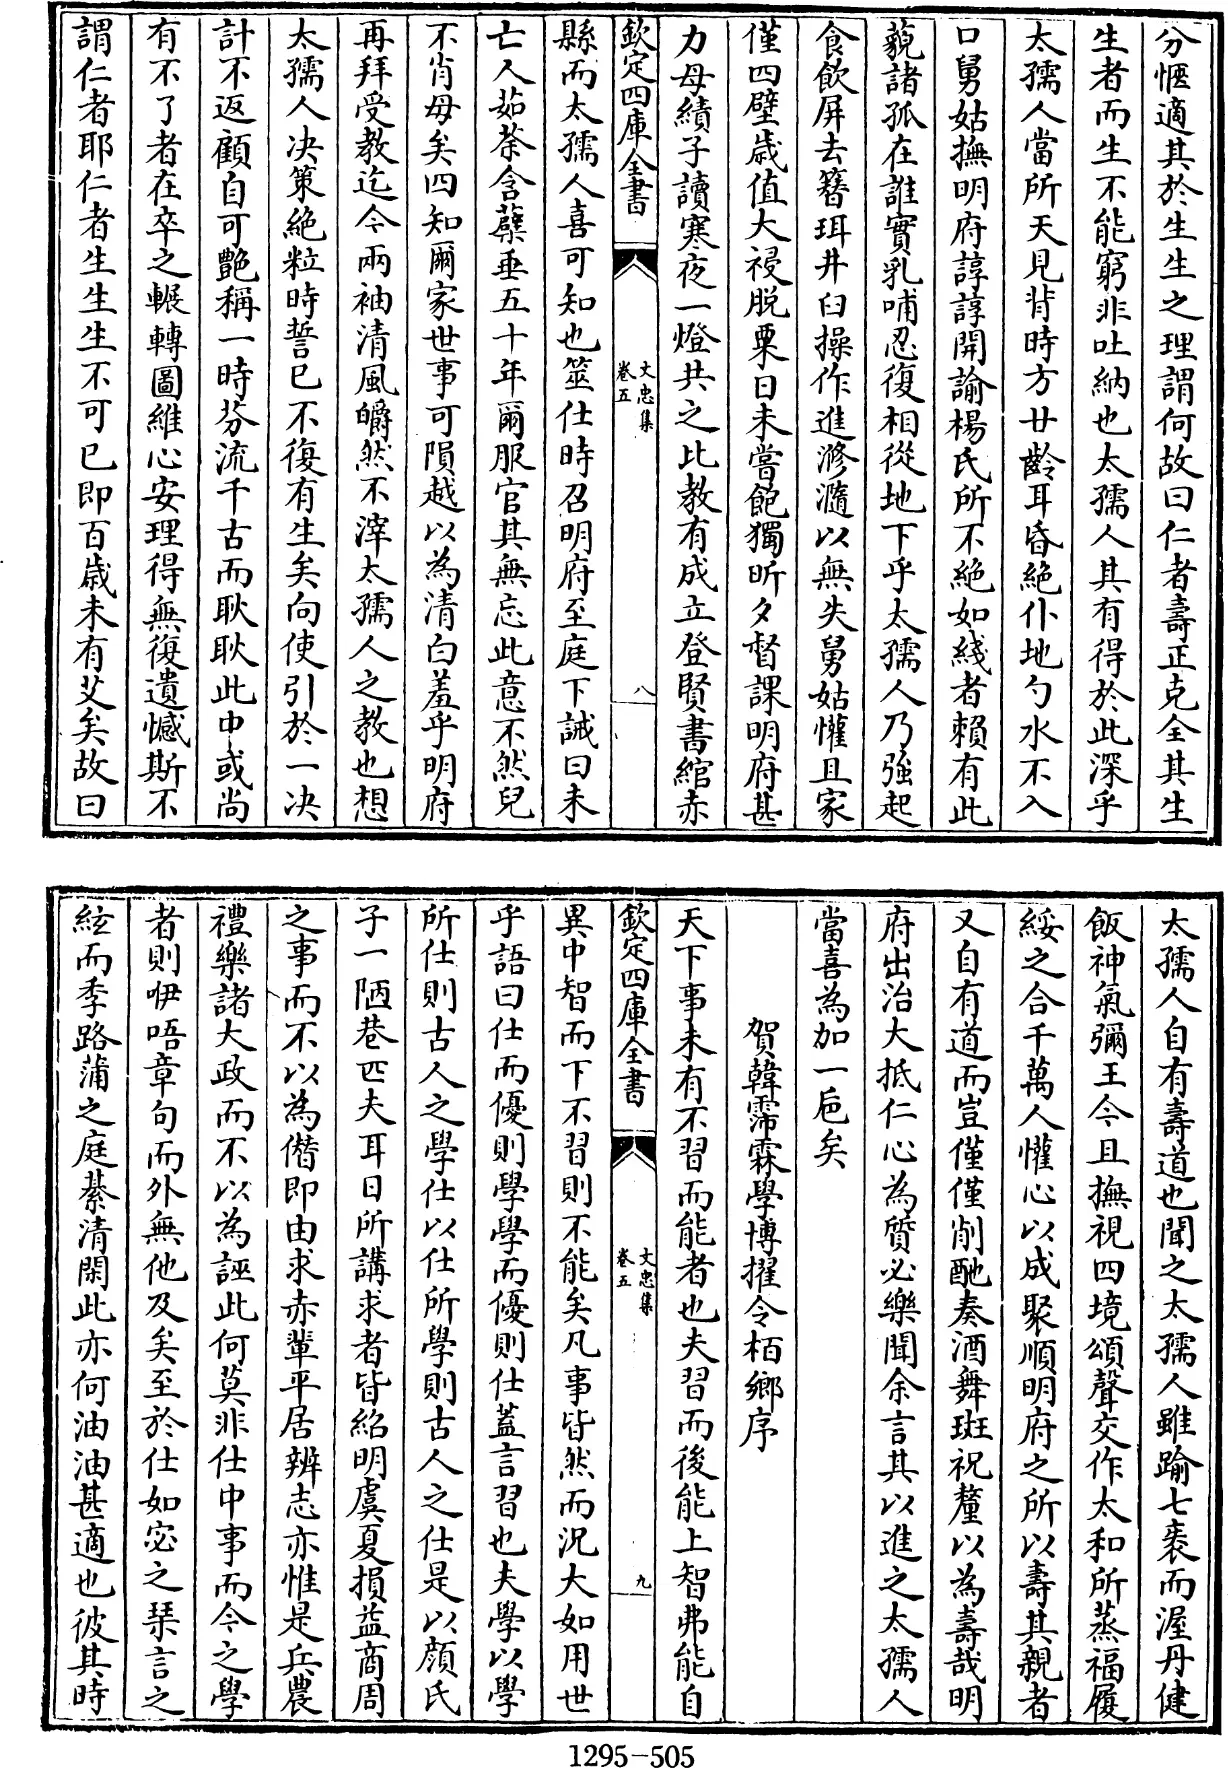 分愜適其於生生之理謂何故曰仁者壽正克全其生
生者而生不能窮非吐納也太孺人其有得於此深乎
太孺人當所天見背時方廿齡耳昏絶仆地勺水不入
口舅姑撫明府諄諄開諭楊氏所不絶如綫者賴有此
藐諸孤在誰實乳哺忍復相從地下乎太孺人乃強起
食飲屏去簪珥井臼操作進滫瀡以無失舅姑懽且家
僅四壁歳值大祲脱粟日未嘗飽獨昕夕督課明府甚
力母績子讀寒夜一燈共之比教有成立登賢書綰赤
欽定四庫全書
文忠集
卷五
八
縣而太孺人喜可知也筮仕時召明府至庭下誡曰未
亡人茹荼含蘗垂五十年爾服官其無忘此意不然兒
不肖母矣四知爾家世事可隕越以為清白羞乎明府
再拜受教迄今兩袖清風皭然不滓太孺人之教也想
太孺人决策絶粒時誓已不復有生矣向使引於一决
計不返顧自可艷稱一時芬流千古而耿耿此中或尚
有不了者在卒之輾轉圖維心安理得無復遺憾斯不
謂仁者耶仁者生生生不可已即百歳未有艾矣故曰
太孺人自有壽道也聞之太孺人雖踰七袠而渥丹健
飯神氣彌王今且撫視四境頌聲交作太和所蒸福履
綏之合千萬人懽心以成聚順明府之所以壽其親者
又自有道而豈僅僅削酏奏酒舞斑祝釐以為壽哉明
府出治大抵仁心為質必樂聞余言其以進之太孺人
當喜為加一巵矣
賀韓霈霖學博擢令栢鄉序
天下事未有不習而能者也夫習而後能上智弗能自
欽定四庫全書
文忠集
卷五
九
異中智而下不習則不能矣凡事皆然而況大如用世
乎語曰仕而優則學學而優則仕葢言習也夫學以學
所仕則古人之學仕以仕所學則古人之仕是以顔氏
子一陋巷匹夫耳日所講求者皆紹明虞夏損益商周
之事而不以為僭即由求赤輩平居辨志亦惟是兵農
禮樂諸大政而不以為誣此何莫非仕中事而今之學
者則咿唔章句而外無他及矣至於仕如宓之琴言之
絃而季路蒲之庭綦清閑此亦何油油甚適也彼其時
1295-505